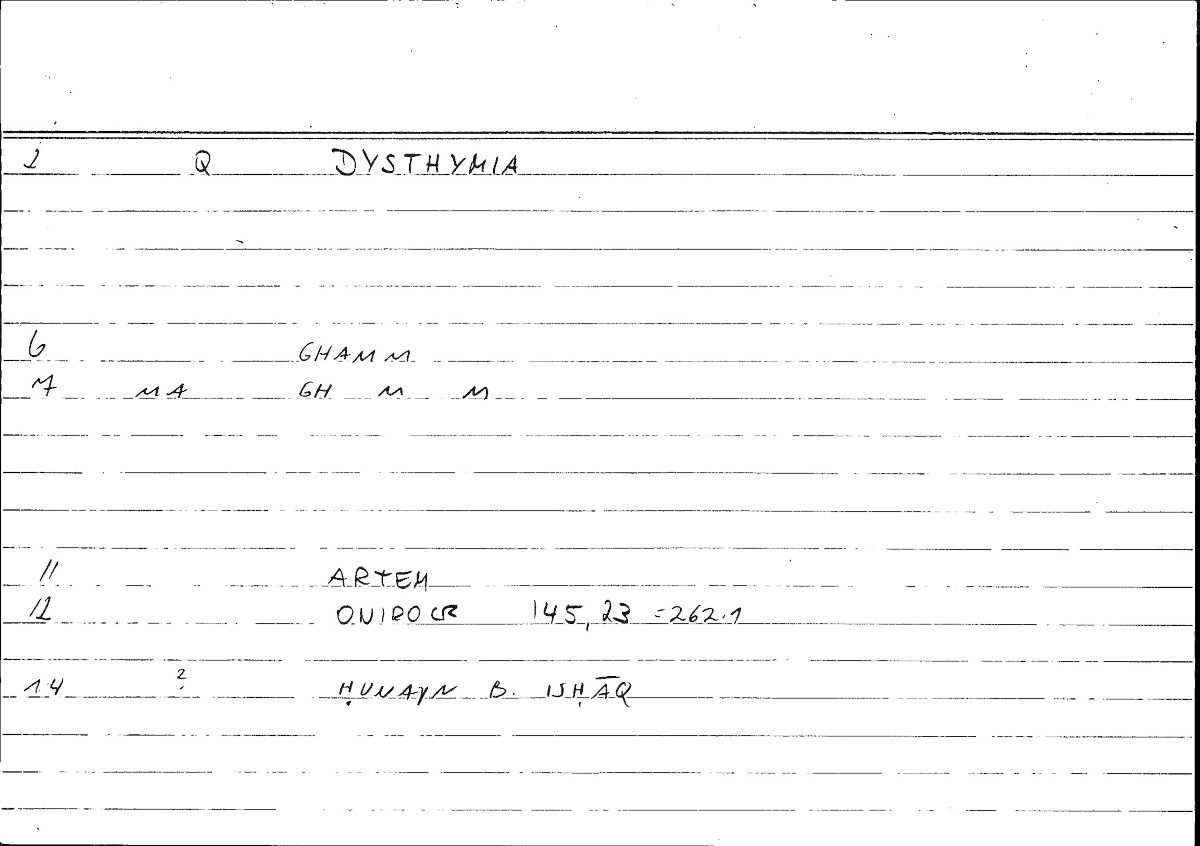 2 Q DYSTHYMIA
6 GHAMM
7 MA GH M M
11 ARTEM
12 ONIROCR 145,23 =262.1
14 ? ḤUNAYN B. ISḤĀQ